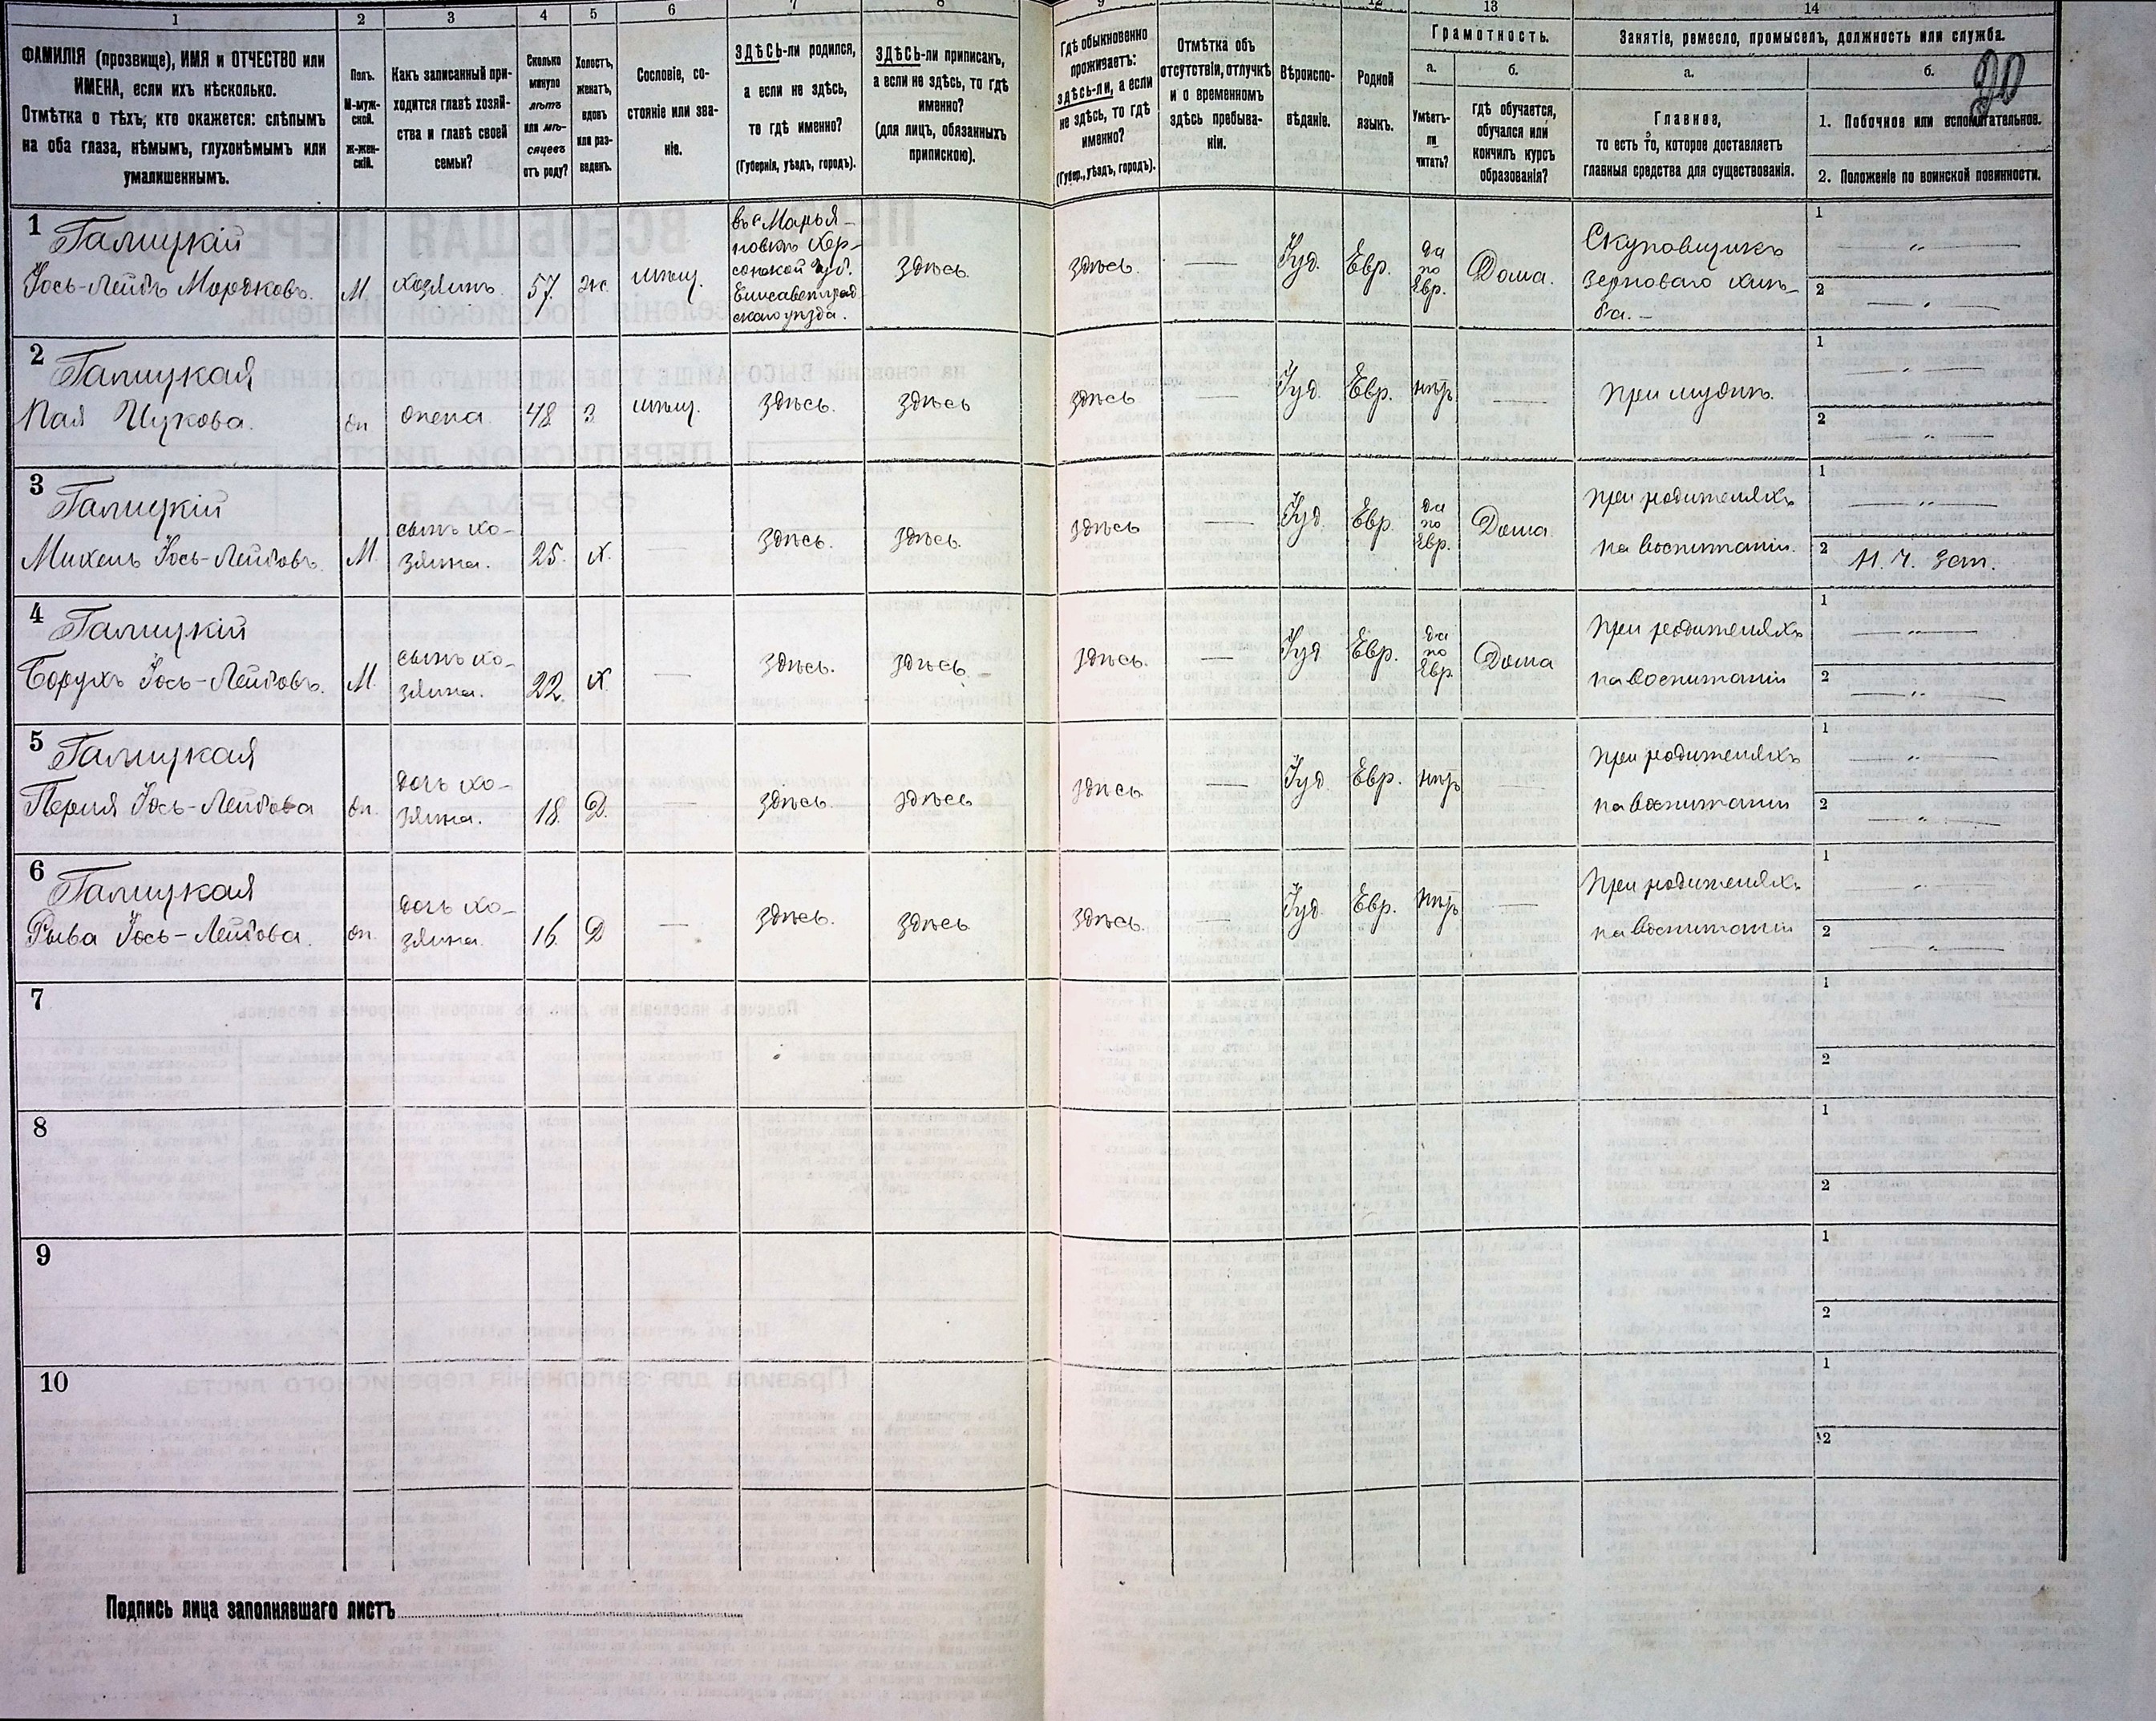 1
2
3
4
5
6
7
8
9
12
13
14
ФАМИЛІЯ (прозвище), ИМЯ и ОТЧЕСТВО или
ИМЕНА, если ихъ нѣсколько.
Отмѣтка о тѣхъ, кто окажется: слѣпымъ
на оба глаза, нѣмымъ, глухонѣмымъ или
умалишеннымъ.
Полъ.
М-муж-
ской.
Ж-жен-
скій.
Какъ записанный при-
ходится главѣ хозяй-
ства и главѣ своей
семьи?
Сколько
минуло
лѣтъ
или мѣ-
сяцевъ
отъ роду?
Холостъ,
женатъ,
вдовъ
или раз-
веденъ.
Сословіе, со-
стояніе или зва-
ніе.
ЗДѢСЬ-ли родился,
а если не здѣсь,
то гдѣ именно?
(Губернія, уѣздъ, городъ).
ЗДѢСЬ-ли приписан,
а если не здѣсь, то гдѣ
именно?
(для лицъ, обязанныхъ
припискою).
Гдѣ обыкновенно
проживаетъ:
здѣсь-ли, а если
не здѣсь, то гдѣ
именно?
(Губер., уѣздъ, городъ).
Отмѣтка объ
отсутствіи, отлучкѣ
и о временномъ
здѣсь пребыва-
ніи.
Вѣроиспо-
вѣданіе.
Родной
языкъ.
Грамотность.
а.
Умѣетъ-
ли
читать?
б.
гдѣ обучается,
обучался или
кончилъ курсъ
образованія?
Занятіе, ремесло, промыселъ, должность или служба.
а.
Главное,
то есть то, которое доставляетъ
главныя средства для существованія.
б.
20
1. Побочное или вспомогательное.
2. Положеніе по воинской повинности.
1
Галицкій
Іось-Лейбъ Мордковъ.
М.
хозяинъ.
57.
ж.
мѣщ.
въ с Марья-
новкѣ Хер-
сонской губ.
Елисаветград
скаго уѣзда.
здѣсь.
здѣсь.
—
Іуд.
Евр.
да
по
Евр.
Дома.
Скуповщикъ
зерноваго хлѣ-
ба. -
1
— " —
2
— " —
2
Галицкая
жена
48.
З
мѣщ.
здѣсь.
здѣсь
здѣсь
—
Іуд.
Евр.
нѣтъ
—
при мужѣ.
1
— " —
2
— " —
3
Галицкій
Михель Іось-Лейбовъ.
М.
сынъ хо-
зяина.
25.
х.
—
здѣсь.
здѣсь.
здѣсь
—
Іуд.
Евр.
да
по
Евр.
Дома.
при родителяхъ
на воспитаніи.
1
— " —
2
4
Галицкій
Борухъ Іось-Лейбовъ.
М.
сынъ хо-
зяина.
22.
х
—
здѣсь.
здѣсь.
здѣсь.
—
Іуд
Евр.
да
по
Евр.
Дома
при родителяхъ
на воспитаніи
1
— " —
2
— " —
5
Галицкая
Перля Іось-Лейбова
ж.
дочь хо-
зяина.
18.
Д.
—
здѣсь.
здѣсь
здѣсь
—
Іуд.
Евр.
нѣтъ
—
при родителяхъ
на воспитаніи
1
— " —
2
— " —
6
Галицкая
Рыва Іось-Лейбова.
ж.
дочь хо-
зяина.
16.
Д
—
здѣсь.
здѣсь
здѣсь.
—
Іуд.
Евр.
нѣтъ
—
при родителяхъ
на воспитаніи
1
— " —
2
— " —
7
1
2
8
1
2
9
1
2
10
1
2
Подпись лица заполнявшаго листъ